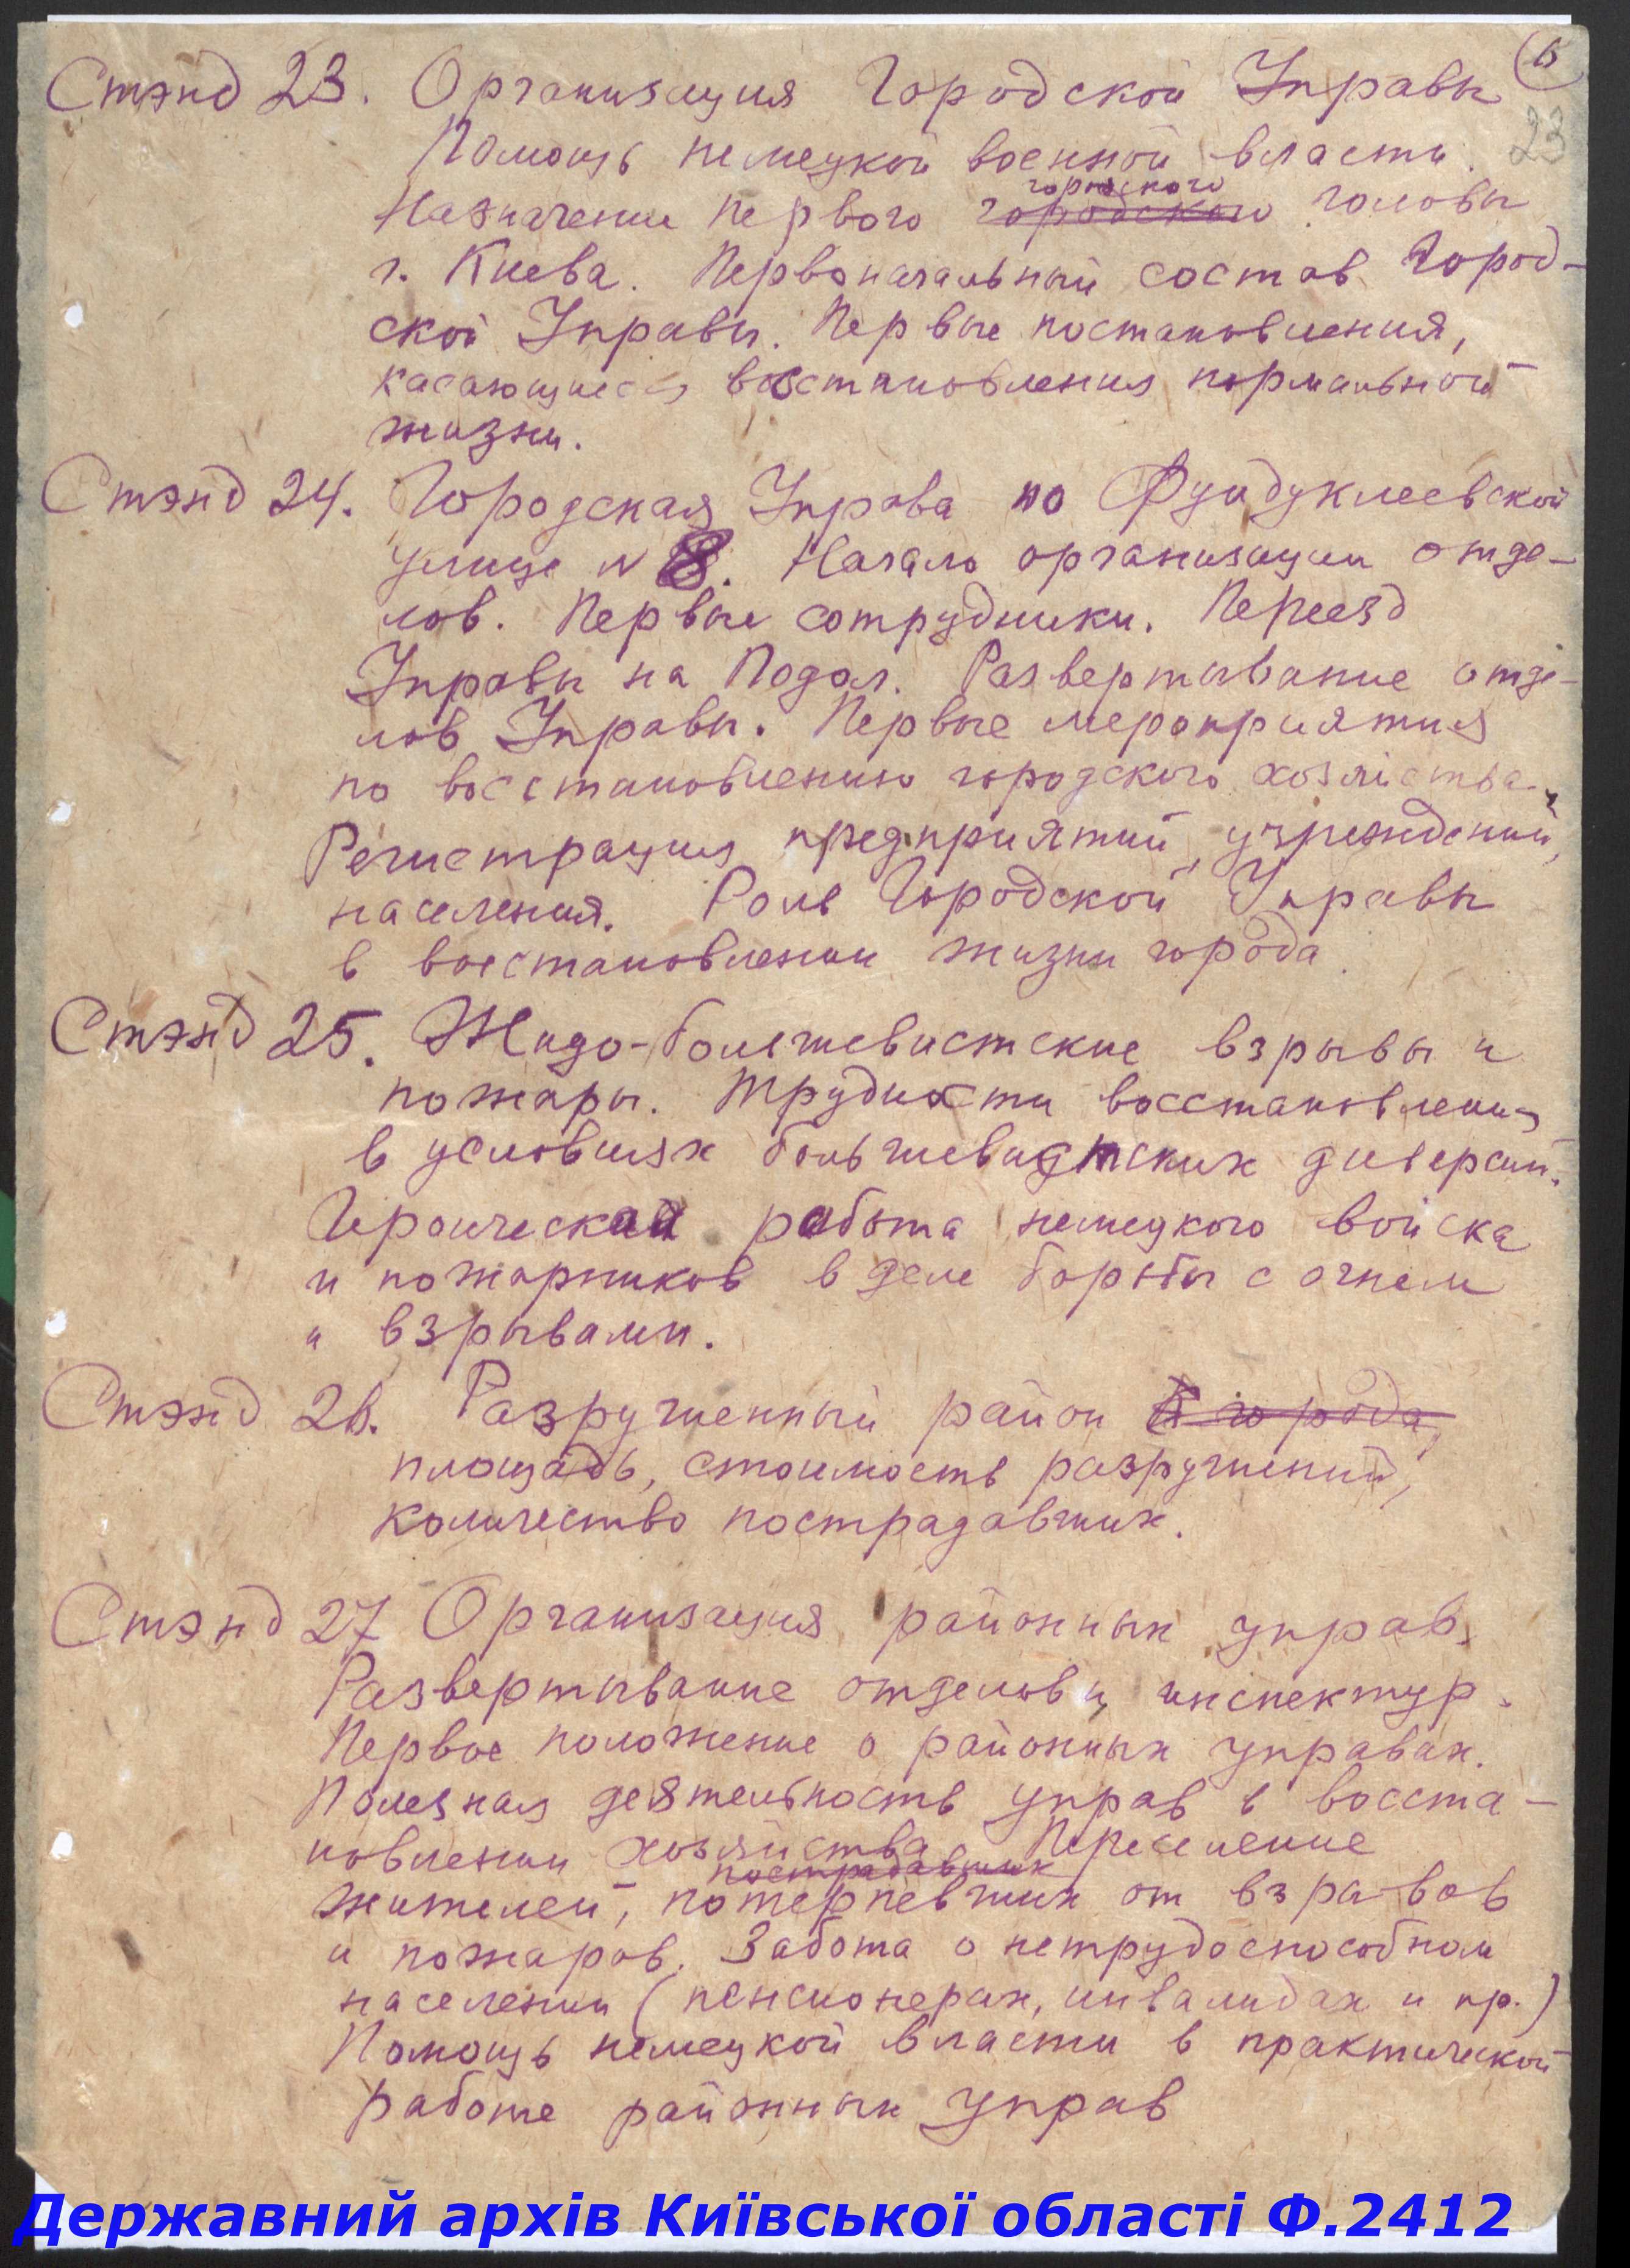 6
Стэнд 23. Организация Городской Управы
23
Помощь немецкой военной власти.
городского
Назначение первого городского головы
г. Киева. Первоначальный состав Город-
ской Управы. Первые постановления,
касающиеся восстановления нормальной
жизни.
Стэнд 24. Городская Управа по Фундуклеевской
улице N 8. Начало организации отде-
лов. Первые сотрудники. Переезд
Управы на Подол. Развертывание отде-
лов Управы. Первые мероприятия
по восстановлению городского хозяйства.
Регистрация предприятий, учреждений,
населения. Роль Городской Управы
в восстановлении жизни города.
Стэнд 25. Жидо-большевистские взрывы и
пожары. Трудности восстановления
в условиях большевистских диверсий.
Героическая работа немецкого войска
и пожарников в деле борьбы с огнем
и взрывами.
Стэнд 26. Разрушенный район города,
площадь, стоимость разрушений,
количество пострадавших.
Стэнд 27 Организация районных управ.
Развертывание отделов и инспектур.
Первое положение о районных управах.
Полезная деятельность управ в восста-
новлении хозяйства. Переселение
пострадавших
жителей, потерпевших от взрывов
и пожаров. Забота о нетрудоспособном
населении (пенсионерах, инвалидах и пр.)
Помощь немецкой власти в практической
работе районных управ
Державний архів Київської області Ф.2412